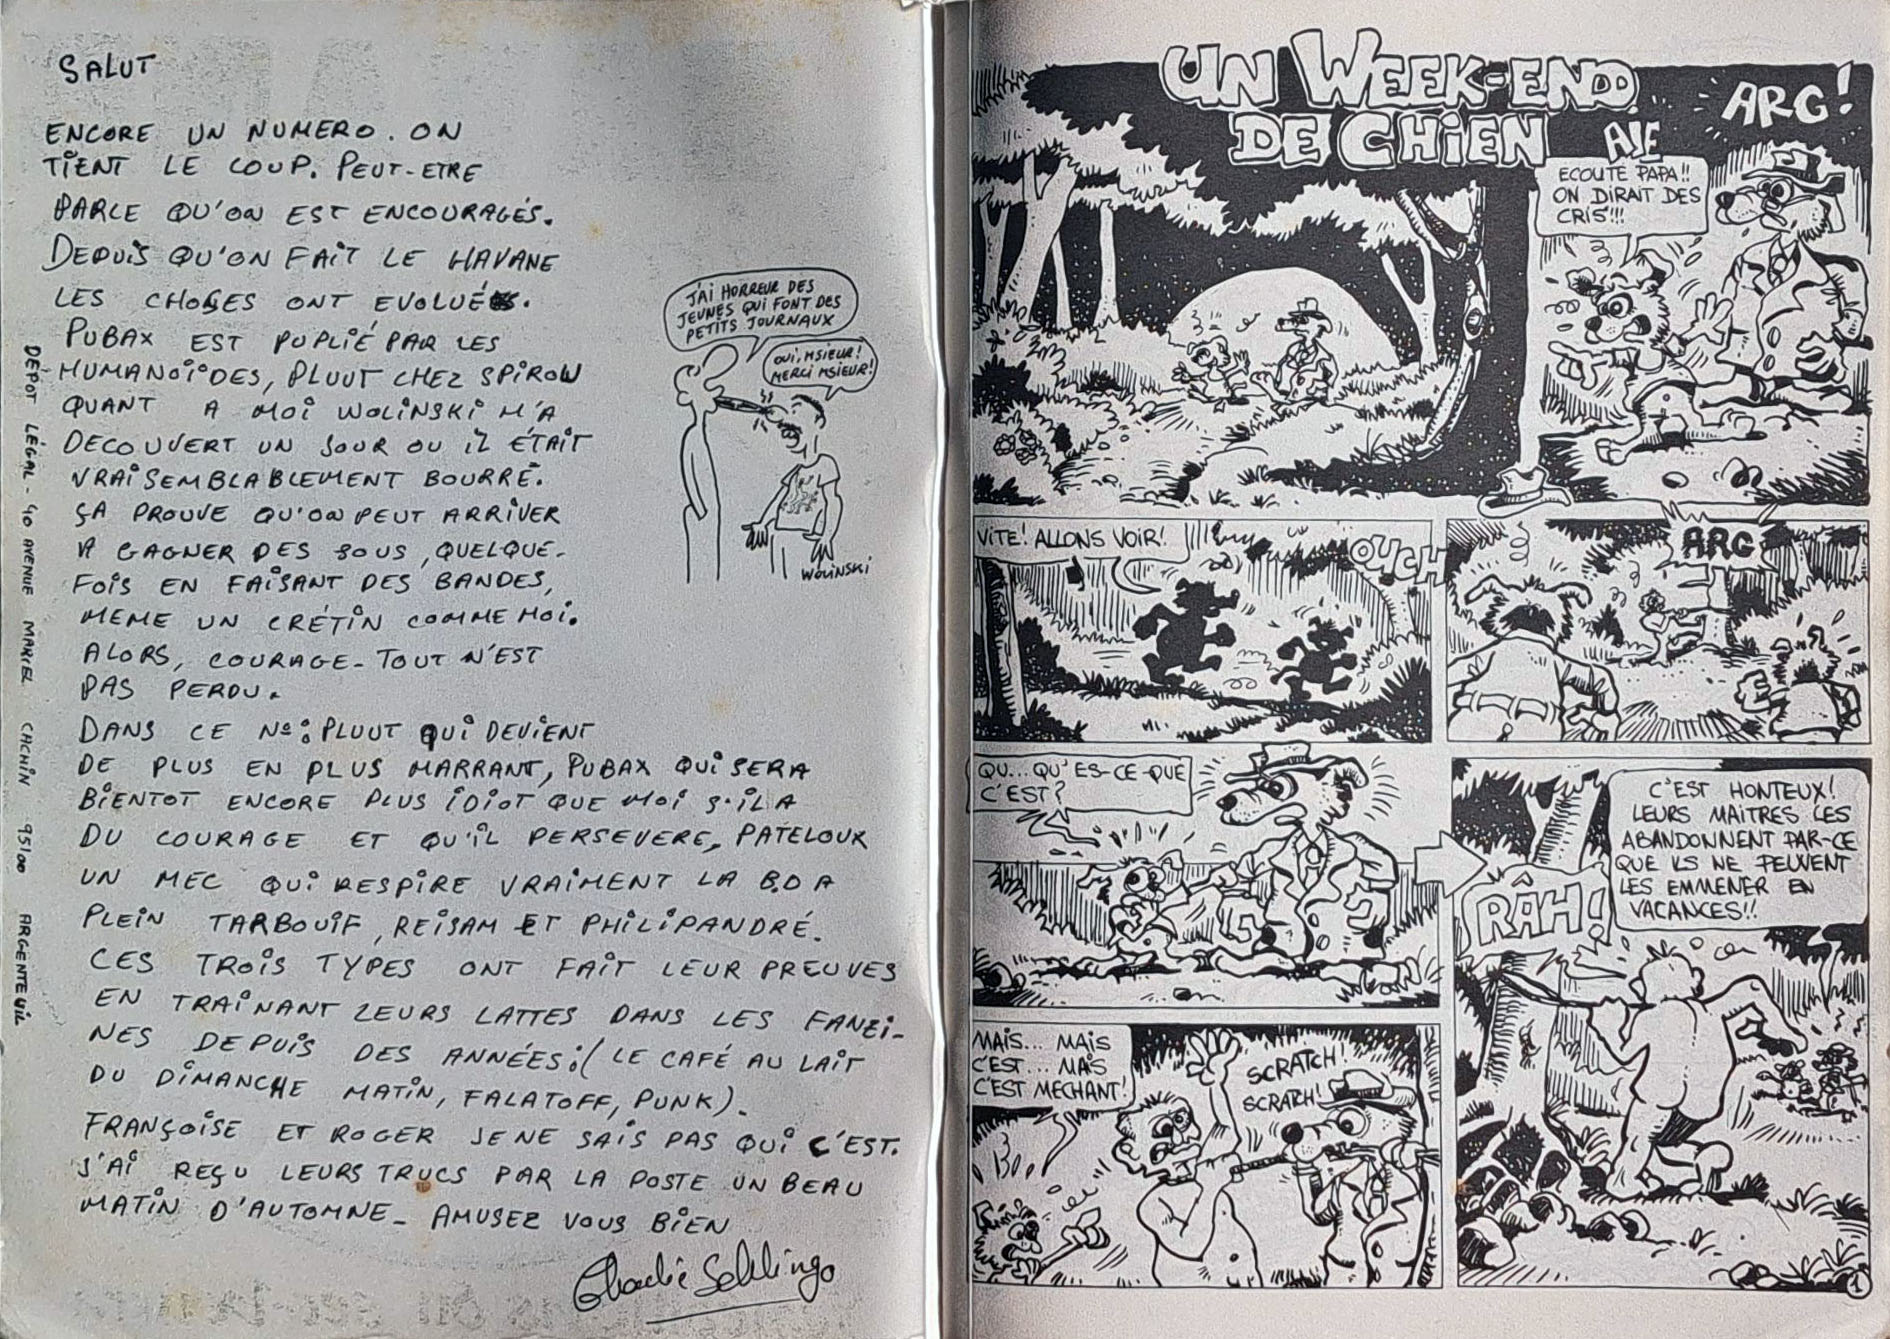 SALUT
ENCORE UN NUMERO. ON
TIENT LE COUP. PEUT-ETRE
PARLE QU'ON EST ENCOURAGÉS.
DEPUIS QU'ON FAIT LE HAVANE
LES CHOSES ONT EVOLUÉ.
PUBAX EST PUPLIÉ PAR LES
HUMANOÏDES, PLUUT CHEZ SPIROU
QUANT A MOI WOLINSKI M'A
DECOUVERT UN JOUR OU IL ÉTAIT
VRAISEMBLABLEMENT BOURRÉ.
ÇA PROUVE QU'ON PEUT ARRIVER
A GAGNER DES SOUS, QUELQUE-
FOIS EN FAISANT DES BANDES,
MEME UN CRÉTIN COMME MOI.
ALORS, COURAGE- TOUT N'EST
PAS PERDU.
DANS CE Nº: PLUUT QUI DEVIENT
DE PLUS EN PLUS MARRANT, PUBAX QUI SERA
BIENTOT ENCORE PLUS IDIOT QUE MOI S'IL A
DU COURAGE ET QU'IL PERSEVERE, PATELOUX
UN MEC QUI RESPIRE VRAIMENT LA B.D A
PLEIN TARBOUIF, REISAM ET PHILIPANDRÉ.
CES TROIS TYPES ONT FAIT LEUR PREUVES
EN TRAINANT LEURS LATTES DANS LES FANZI-
NES DEPUIS DES ANNÉES:( LE CAFÉ AU LAIT
DU DIMANCHE MATIN, FALATOFF, PUNK).
FRANÇOISE ET ROGER JE NE SAIS PAS QUI C'EST.
J'AI REÇU LEURS TRUCS PAR LA POSTE UN BEAU
MATIN D'AUTOMNE- AMUSEZ VOUS BIEN
Charlie Schlingo
DÉPOT LÉGAL - 40 AVENUE MARCEL CACHIN 95100 ARGENTEUIL
J'AI HORREUR DES
JEUNES QUI FONT DES
PETITS JOURNAUX
OUI, MSIEUR!
MERCI MSIEUR!
WOLINSKI
UN WEEK-END
DE CHIEN
AIE
ARG!
ECOUTE PAPA!!
ON DIRAIT DES
CRIS!!!
VITE! ALLONS VOIR!
OUCH
ARG
QU... QU'ES-CE-QUE
C'EST?
C'EST HONTEUX!
LEURS MAITRES LES
ABANDONNENT PAR-CE
QUE ILS NE PEUVENT
LES EMMENER EN
VACANCES!!
RÂH!
MAIS... MAIS
C'EST... MAIS
C'EST MECHANT!
SCRATCH!
SCRATCH!
1